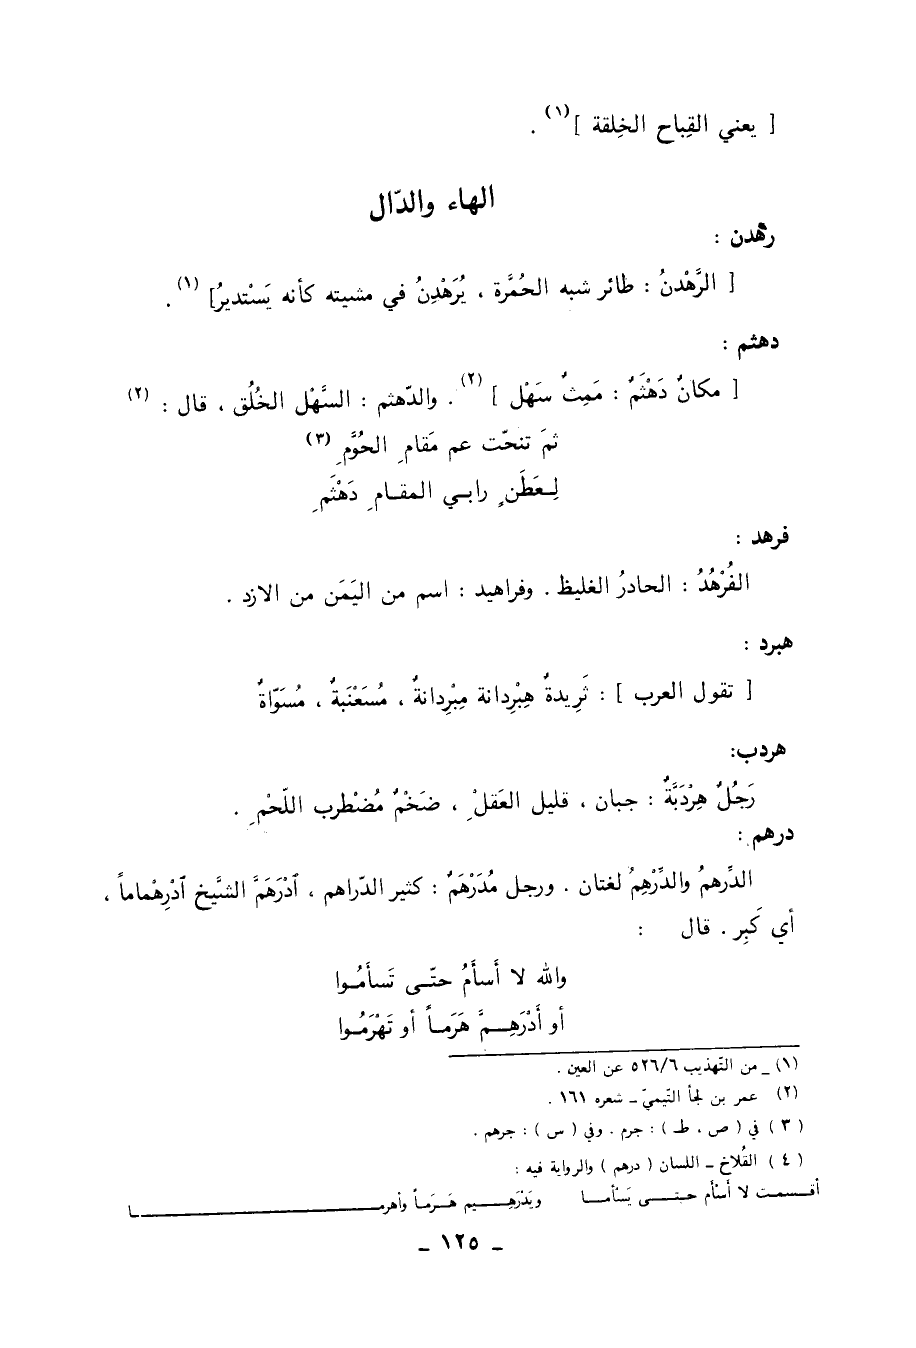 [ يعني القِباح الخِلقة ](١) .
الهاء والدّال
رهدن :
[ الرَّهْدنُ : طائر شبه الحُمَّرة ، يُرَهْدِنُ في مشيته كأنه يَسْتديرُ] (١) .
دهثم :
[ مكانٌ دَهْثَمٌ : مَمِثٌ سَهْل ] (٢) . والدّهثم : السَّهْل الخُلُق ، قال : (٢)
ثمَ تنحّت عم مَقامِ الحُوَّمِ (٣)
لِـعَطَنٍ رابـي المقـامِ دَهْثَمِ
فرهد :
الفُرْهُدُ : الحادرُ الغليظ . وفراهيد : اسم من اليَمَن من الازد .
هبرد :
[ تقول العرب ] : ثَرِيدةٌ هِبْرِدانة مِبْرِدانةٌ ، مُسَعْنَبةٌ ، مُسَوّاةٌ
هردب:
رَجُلٌ هِرْدَبَّةٌ : جبان ، قليل العَقلْ ، ضَخْمٌ مُضْطرب اللّحْمِ .
درهم :
الدِّرهمُ والدِّرْهِمُ لغتان . ورجل مُدَرْهَمٌ : كثير الدّراهم ، ٱدْرَهَمَّ الشيَّخ ٱدْرِهْماماً ،
أي كَبِر . قال :
والله لا أسأَمُ حتّـى تَسأَمُـوا
أو أَدْرَهِـــمَّ هَرَمـاً أو تَهْرَمُـوا
(١) ــ من التّهذيب ٥٢٦/٦ عن العين .
(٢) عمر بن لجأ التّيميّ ــ شعره ١٦١ .
( ٣ ) في ( ص ، ط ) : جرم . وفي ( س ) : جرهم .
( ٤ ) القُلاخ ــ اللسان ( درهم ) والرواية فيه :
أقــسمت لا أسْأَم حـتــى يَسْأمــا ويَدْرَهِــــيم هَـرَمـاً وأهرمــــــــــا
ــ ١٢٥ ــ